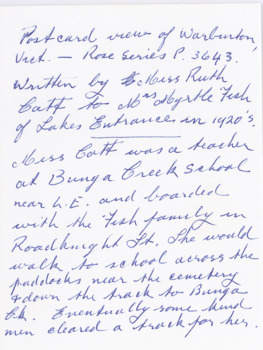 Postcard view of Warburton,
Vict. — Rose Series P. 3643.
Written by Miss Ruth
Catt to Mrs Myrtle Fish
of Lakes Entrances in 1920's.
Miss Catt was a teacher
at Bunga Creek School
near L.E. and boarded
with the Fish family in
Roadknight St. She would
walk to school across the
paddocks near the cemetery
& down the track to Bunga
Ck. Eventually some kind
men cleared a track for her.